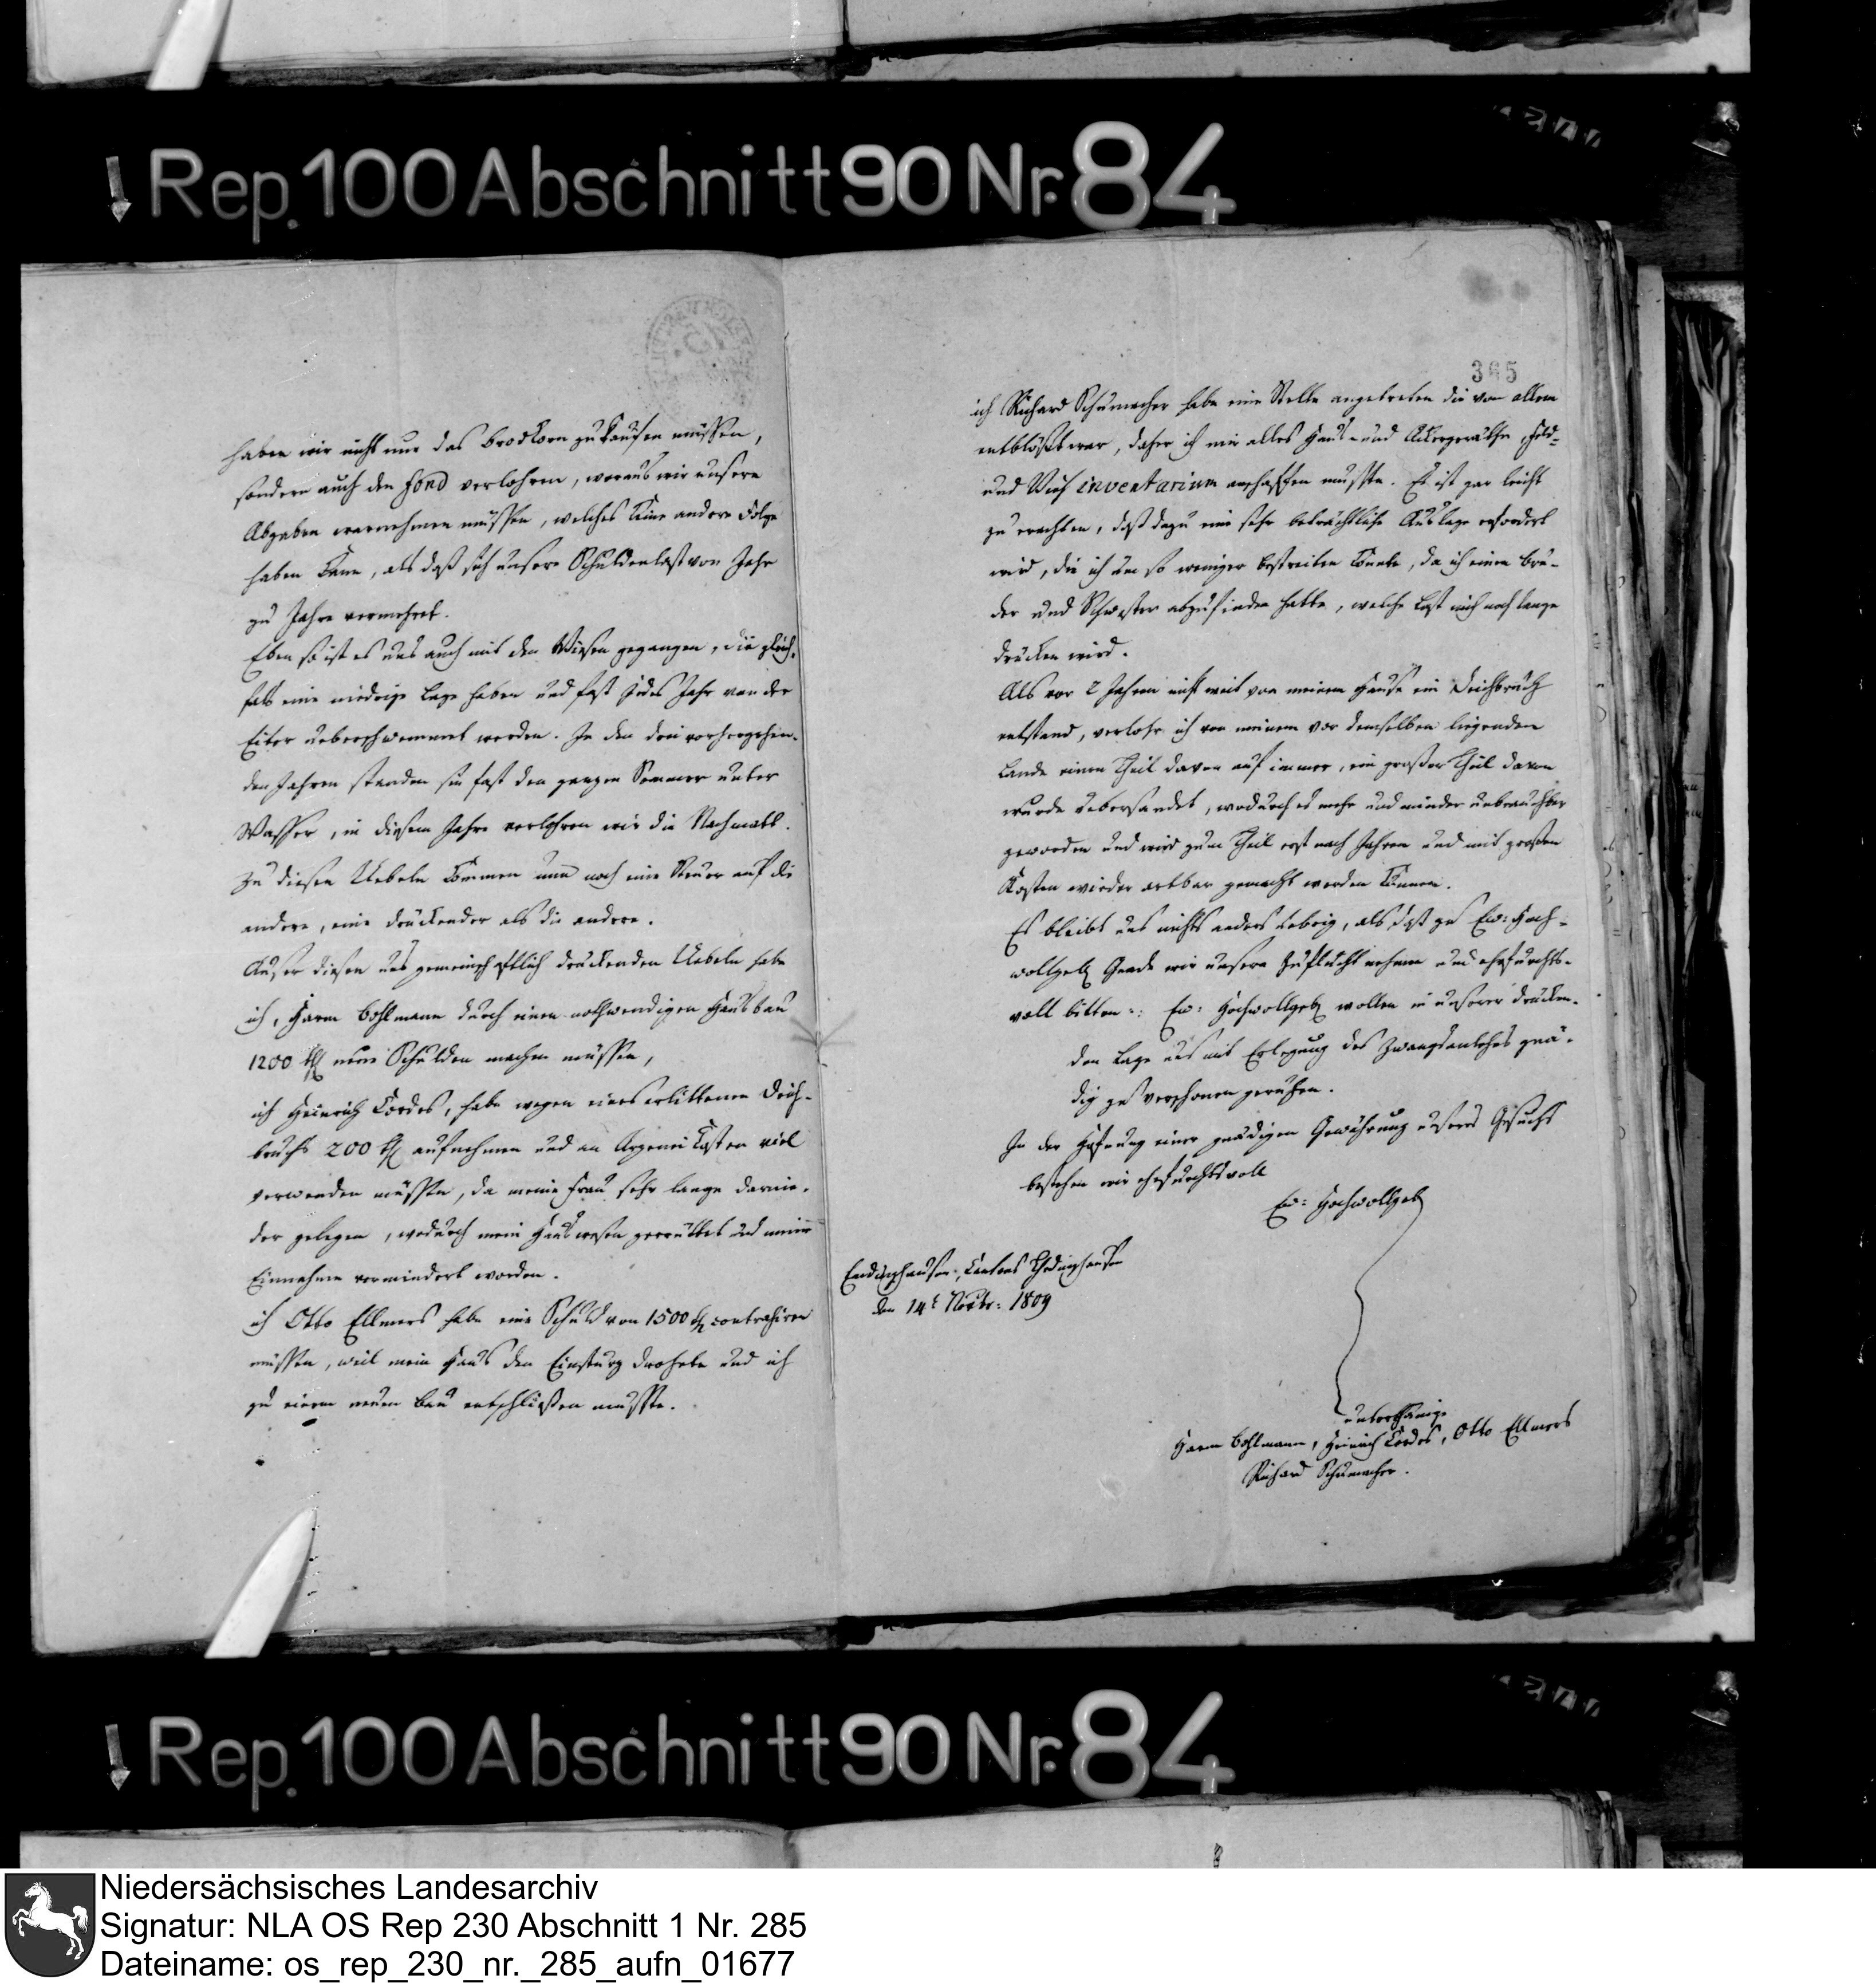 Rep. 100 Abschnitt 90 Nr. 84
haben wir nicht nur das Brodkorn zu kaufen müssen,
sondern auch den fond verlohren, woraus wir unsere
Abgaben wernehmen müssen, welches keine andere Folge
haben kann, als daß sich unsere Schuldenlast von Jahr
zu Jahre vermehret.
Eben so ist es uns auch mit den Wiesen gegangen, die gleich-
fals eine niedrige Lage haben und fast jedes Jahr von der
Eiter ueberschwemmet werden. In den drei vorhergehen-
den Jahren standen sie fast den ganzen Sommer unter
Wasser, in diesem Jahre verlohren wir die Nachmatt.
Zu diesen Uebeln kommen nun noch eine Steuer auf die
andere, eine drückender als die andere.
Außer diesen uns gemeinschaftlich drückenden Uebeln habe
ich, Harm Bohlmann durch einen nothwendigen Hausbau
1200 rthl neue Schulden machen müssen,
ich Heinrich Cordes, habe wegen eines erlittenen Deich-
bruchs 200 rthl aufnehmen und an Arzeneikosten viel
verwenden müssen, da meine Frau sehr lange darnie-
der gelegen, wodurch mein Hauswesen zerrüttet und meine
Einnahme vermindert worden.
ich Otto Ellmers habe eine Schuld von 1500 rthl contrahiren
müssen, weil mein Haus den Einsturz drohete und ich
zu einem neuen Bau entschließen musste.
365
ich Richard Schumacher habe eine Stelle angetreten die von allem
entblößt war, daher ich mir alles Haus- und Ackergeräthe, Feld-
und Vieh inventarium anschaffen musste. Es ist gar leicht
zu erachten, daß dazu eine sehr beträchtliche Auslage erfordert
wird, die ich um so weniger bestreiten konnte, da ich einen Bru-
der und Schwester abzufinden hatte, welche Last mich noch lange
drücken wird.
Als vor 2 Jahren nicht weit von meinem Hause ein Deichbruch
entstand, verlohr ich von meinem vor demselben liegenden
Lande einen Theil davon auf immer, ein großer Theil davon
wurde uebersandet, wodurch es mehr und minder unbrauchbar
geworden und wird zum Theil erst nach Jahren und mit großen
Kosten wieder artbar gemacht werden können.
Es bleibt uns nichts anders uebrig, als daß zu Ew: Hoch-
wollgeb Gnade wir unsere Zuflucht nehmen und ehrfurchts-
voll bitten: Ew: Hochwollgeb wollen in unserer drücken-
den Lage uns mit Erlegung des Zwangsanlehns gnä-
dig zu verschonen geruhen.
In der Hofnung einer gnädigen Gewährung unsers Gesuchs
bestehen wir ehrfurchtsvoll
Ew: Hochwollgeb
Emdinghausen, Cantons Thedinghausen
den 14t Novbr: 1809
unterthänige
Harm Bohlmann, Heinrich Cordes, Otto Ellmers
Richard Schumacher.
Rep. 100 Abschnitt 90 Nr. 84
Niedersächsisches Landesarchiv
Signatur: NLA OS Rep 230 Abschnitt 1 Nr. 285
Dateiname: os_rep_230_nr._285_aufn_01677